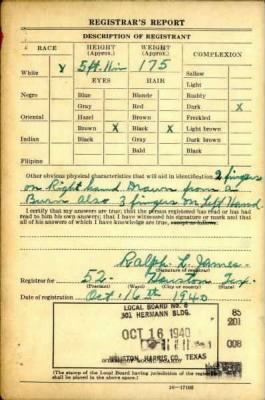 REGISTRAR'S REPORT
DESCRIPTION OF REGISTRANT
RACE HEIGHT (Approx.) WEIGHT (Approx.) COMPLEXION
White X 5 ft. 11 in 175 Sallow
EYES HAIR Light
Negro Blue Blonde Ruddy
Gray Red Dark X
Oriental Hazel Brown Freckled
Brown X Black X Light brown
Indian Black Gray Dark brown
Bald Black
Filipino
Other obvious physical characteristics that will aid in identification 2 fingers
on Right hand Drawn from a
Burn also 3 fingers on Left Hand
I certify that my answers are true; that the person registered has read or has had
read to him his own answers; that I have witnessed his signature or mark and that
all of his answers of which I have knowledge are true, except as follows:
Ralph L. James
(Signature of registrar)
Registrar for 52 Houston Tex.
(Precinct) (Ward) (City or county) (State)
Date of registration Oct. 16th 1940
LOCAL BOARD No. 6
301 HERMANN BLDG.
85
201
OCT 16 1940
008
HOUSTON, HARRIS CO. TEXAS
(The stamp of the Local Board having jurisdiction of the registrant
shall be placed in the above space.)